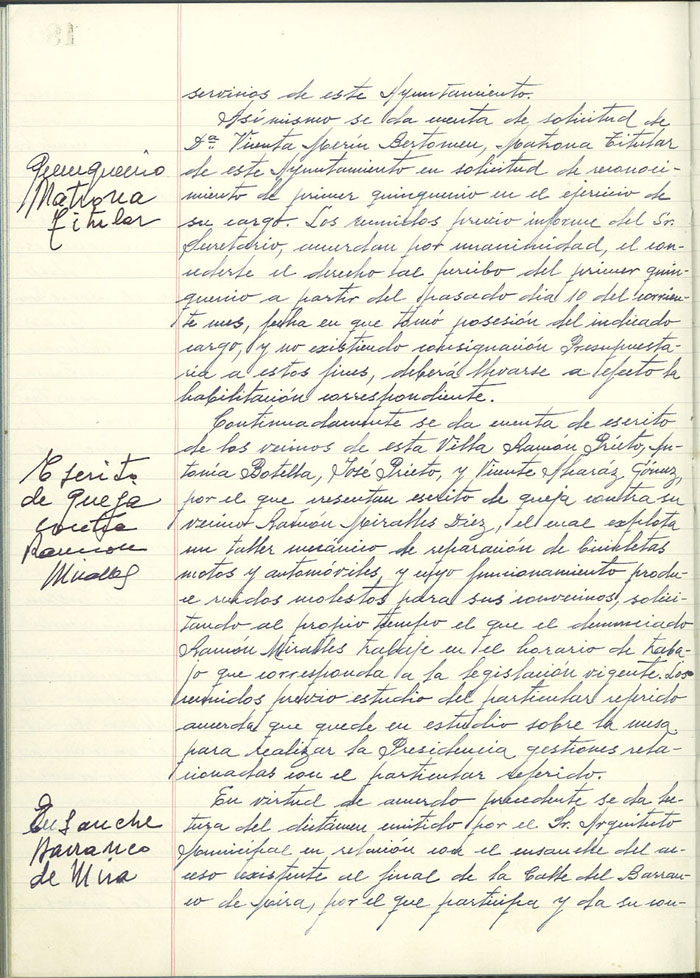 servicios de este Ayuntamiento.
Asimismo se da cuenta de solicitud de
Dª Vicenta Merín Bertomeu, Matrona Titular
de este Ayuntamiento en solicitud de reconoci-
miento de primer quinquenio en el ejercicio de
su cargo. Los reunidos previo informe del Sr.
Secretario, acuerdan por unanimidad, el con-
cederle el derecho al percibo del primer quin-
quenio a partir del pasado dia 10 del corrien-
te mes, fecha en que tomó posesión del indicado
cargo, y no existiendo consignación Presupuesta-
ria a estos fines, deberá llevarse a efecto la
habilitación correspondiente.
Continuadamente se da cuenta de escrito
de los vecinos de esta Villa Ramón Prieto, An-
tonia Botella, José Prieto, y Vicente Alcaraz Gómez,
por el que presentan escrito de queja contra su
vecino Ramón Miralles Diez, el cual explota
un taller mecánico de reparación de bicicletas
motos y automóviles, y cuyo funcionamiento produ-
ce ruidos molestos para sus convecinos, solici-
tando al propio tiempo el que el denunciado
Ramón Miralles trabaje en el horario de traba-
jo que corresponda a la legislación vigente. Los
reunidos previo estudio del particular referido
acuerda que quede en estudio sobre la mesa
para realizar la Presidencia gestiones rela-
cionadas con el particular referido.
En virtud de acuerdo precedente se da lec-
tura del dictámen emitido por el Sr. Arquitecto
Municipal en relación con el ensanche del ac-
ceso existente al final de la Calle del Barran-
co de Mira, por el que participa y da su con-
Quinquenio
Matrona
Titular
Escrito
de queja
contra
Ramon
Miralles
Ensanche
Barranco
de Mira
18